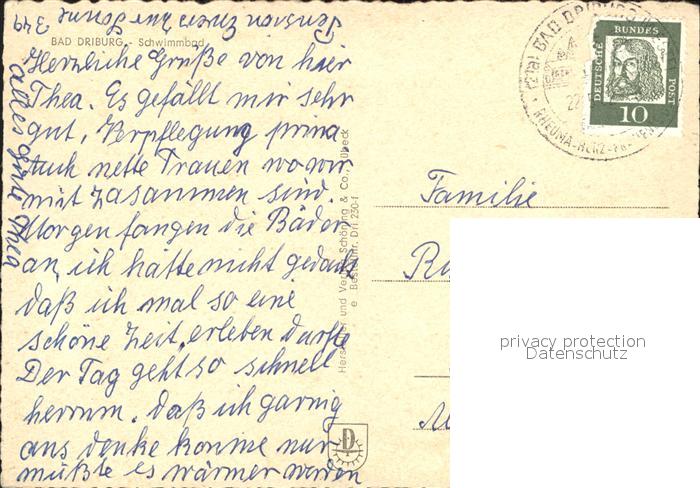 Pension Zwei zur Sonne 349
BAD DRIBURG - Schwimmbad
Herzliche Grüße von hier
Thea. Es gefällt mir sehr
gut, Verpflegung prima
Auch nette Frauen wo wir
mit zusammen sind.
Morgen fangen die Bäder
an, ich hätte nicht gedacht
daß ich mal so eine
schöne Zeit erleben dürfte
Der Tag geht so schnell
herrum. daß ich garnig
ans denke komme nur
müßte es wärmer werden
alles gute Thea
Hersteller und Verlag Schöning & Co., Lübeck
e Bestellnr. Dri 230-1
BAD DRIBURG
RHEUMA-HERZ-FRAUEN
DEUTSCHE
BUNDES
POST
10
Familie
privacy protection
Datenschutz